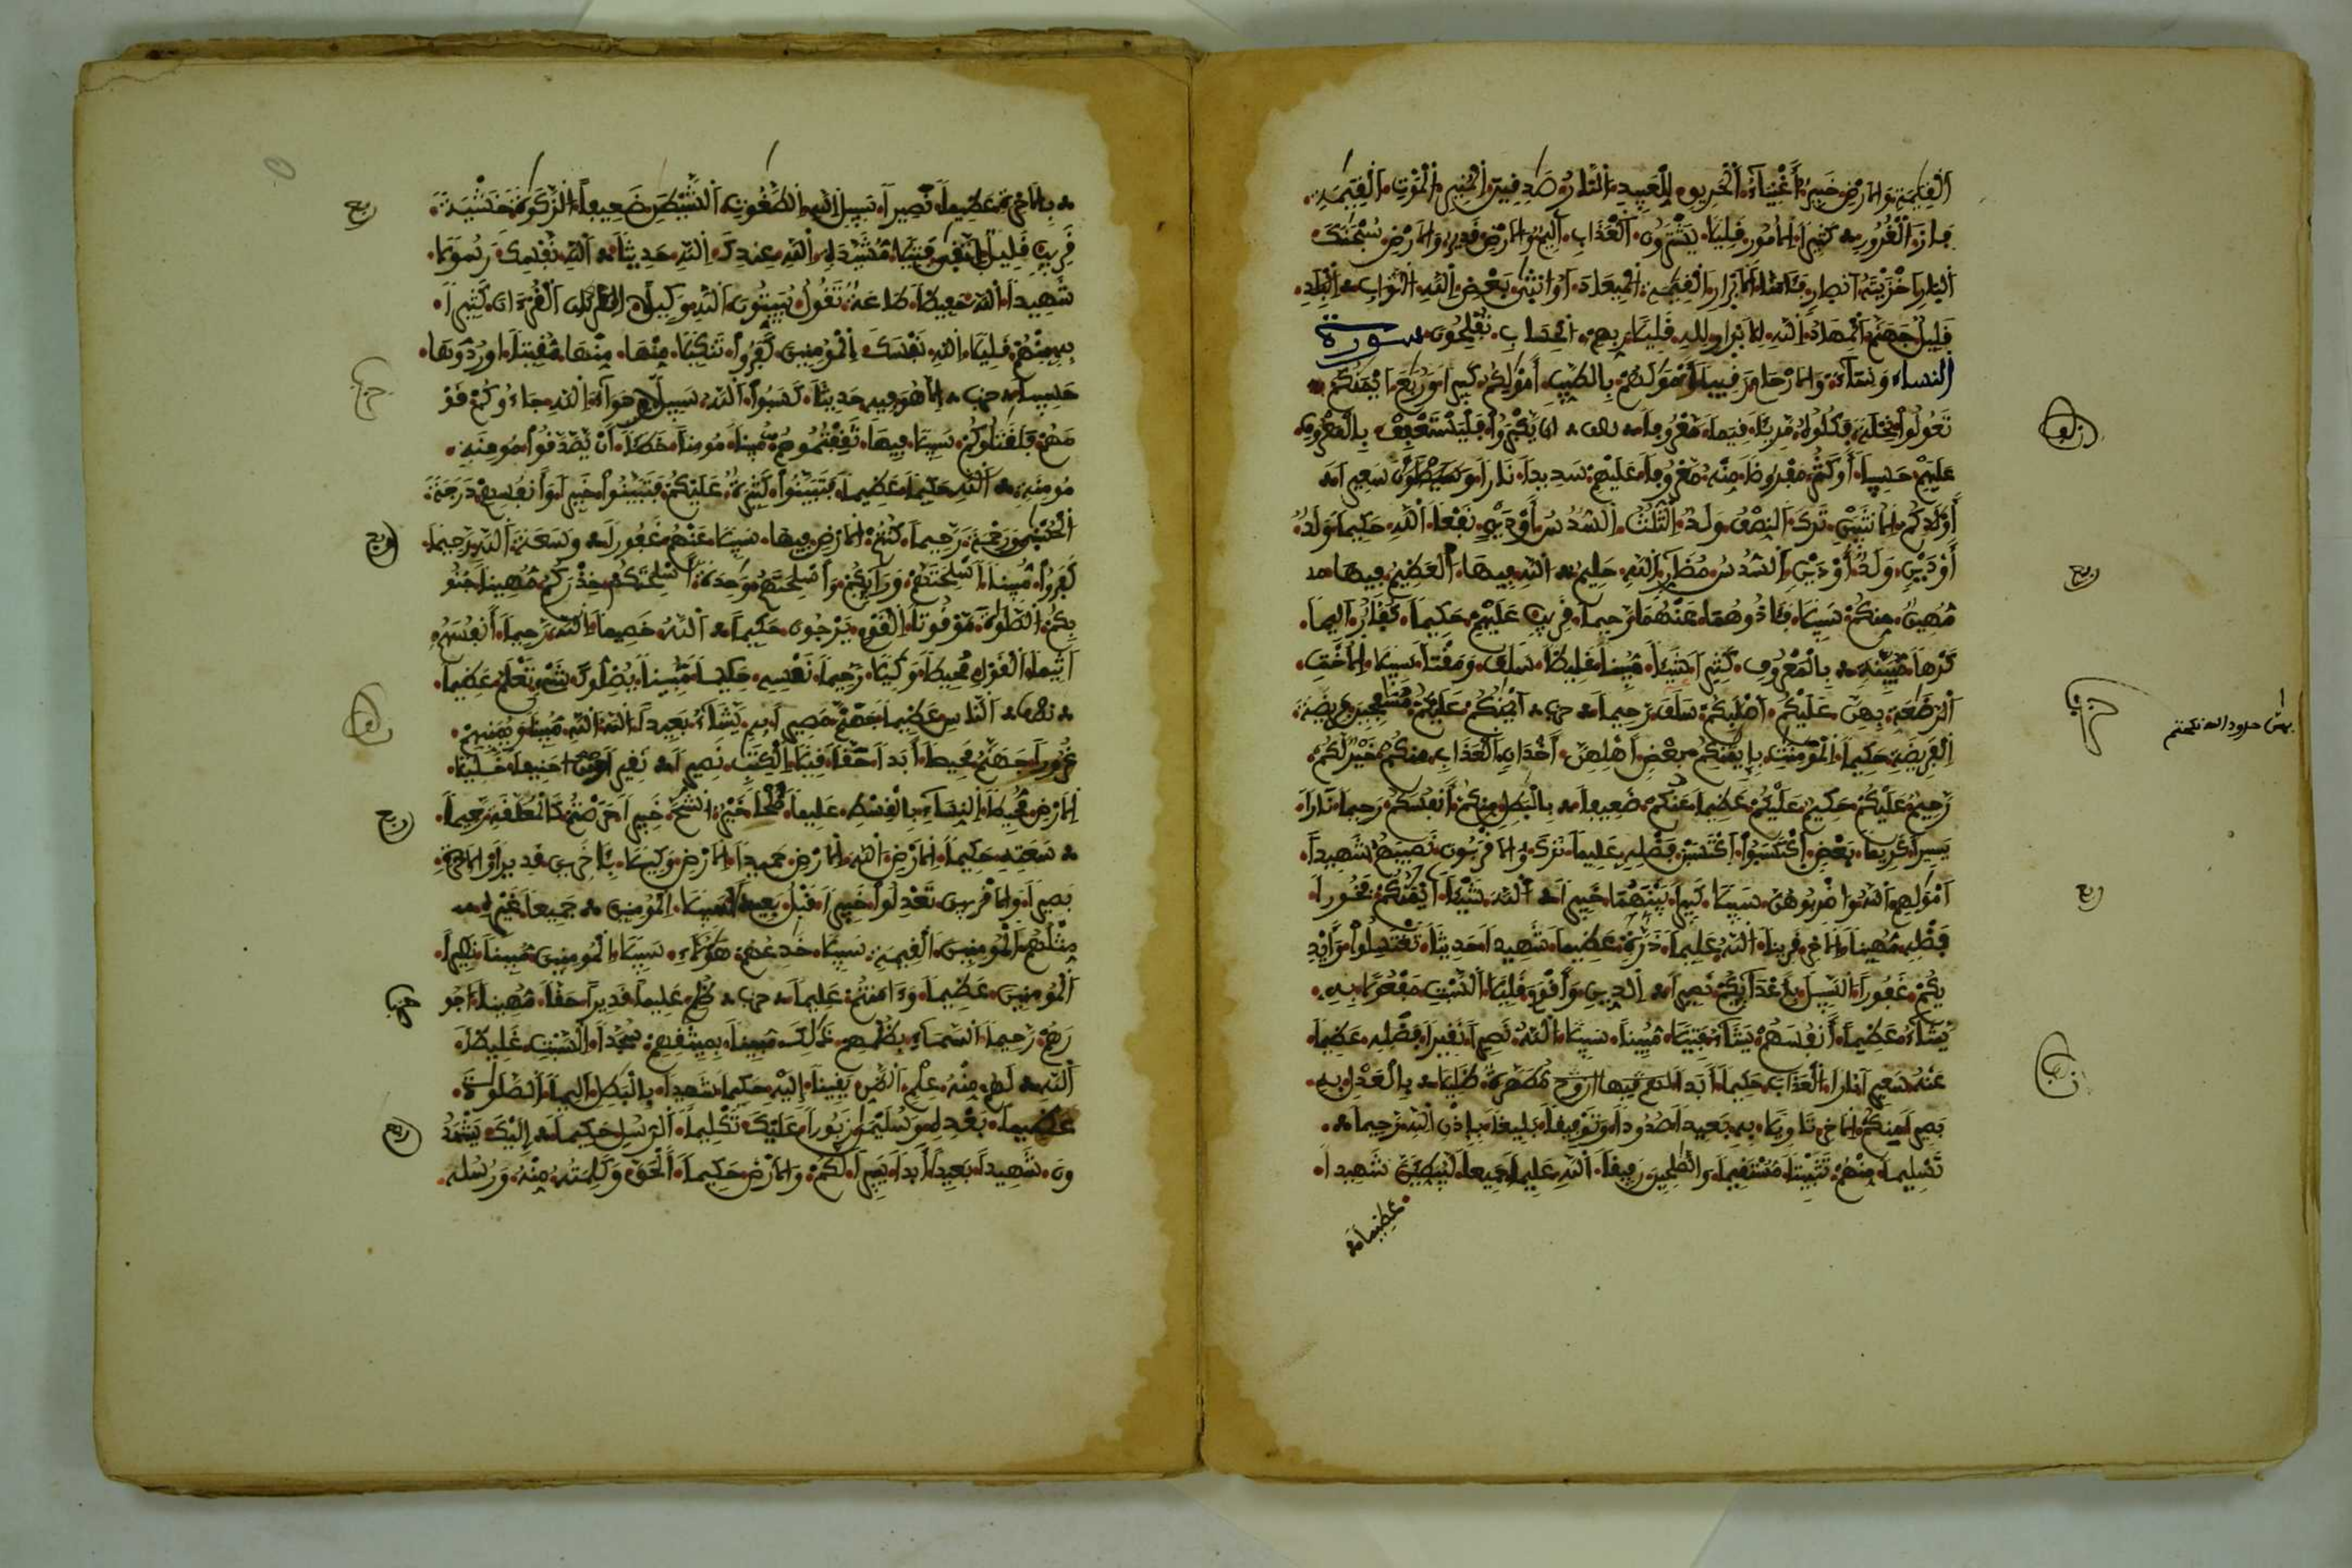 الْقِيَمَةِ وَالاَرْضِ خَبِيرٌ أَغْنِيَاءُ الْحَرِيقِ لِّلْعَبِيدِ النَّارُ صَدِقِينَ الْمُنِيرِ الْمَوْتِ الْقِيَمَةِ
فَازَ الْغُرُورِ كَثِيراً الاُمُورِ قَلِيلًا يَشْتَرُونَ الْعَذَابِ أَلِيمٌ وَالاَرْضِ قَدِيرٌ وَالاَرْضِ سُبْحَنَكَ
النَّارِ أَخْزَيْتَهُ أَنصِارٍ فَـَٔامَنَّا الاَبْرَارِ الْقِيَمَةِ الْمِيعَادَ أَوُ انثَى بَعْضٍ اللَّهِ الثَّوَابِ الْبِلَدِ
قَلِيلٌ جَهَنَّمُ الْمِهَادُ اللَّهِ لِّلاَبْرَارِ لِلهِ قَلِيلًا رَبِّهِمُ الْحِسَابِ تُفْلِحُونَ سورة
النساء وَنِسَآءً وَالاَرْحَامَ رَقِيباً أَمْوَلَهُمْ بِالطَّيِّبِ أَمْوَلِكُمْ كَبِيراً وَرُبَعَ أَيْمَنُكُمْ
تَعُولُوا نِحْلَةً فَكُلُوهُ مَّرِيئاً قِيَماً مَّعْرُوفاً نصف ان يَّكْبَرُوا فَلْيَسْتَعْفِفْ بِالْمَعْرُوفِ
عَلَيْهِمْ حَسِيباً أَوْ كَثُرَ مَّفْرُوضاً مِّنْهُ مَّعْرُوفاً عَلَيْهِمْ سَدِيداً نَاراً وَسَيَصْلَوْنَ سَعِيراً
أَوْلَدِكُمْ الاُنثَيَيْنِ تَرَكَ النِّصْفُ وَلَدٌ الثُّلُثُ السُّدُسُ أَوْ دَيْنٍ نَفْعاً اللَّهِ حَكِيماً وَلَدٌ
أَوْ دَيْنٍ وَلَدٌ أَوْ دَيْنٍ السُّدُسُ مُضَارٍّ اللَّهِ حَلِيمٌ اللَّهِ فِيهَا الْعَظِيمُ فِيهَا
مُّهِينٌ مِنكُمْ سَبِيلًا فَـَٔاذُوهُمَا عَنْهُمَا رَّحِيماً قَرِيبٍ عَلَيْهِمْ حَكِيماً كُفَّارٌ أَلِيماً
كَرْهاً مُّبَيِّنَةٍ بِالْمَعْرُوفِ كَثِيراً شَيْئاً مُّبِيناً غَلِيظاً سَلَفَ وَمَقْتاً سَبِيلًا الاُخْتِ
الرَّضَعَةِ بِهِنَّ عَلَيْكُمْ أَصْلَبِكُمْ سَلَفَ رَّحِيماً حزب أَيْمَنُكُمْ عَلَيْكُمْ مُسَفِحِينَ فَرِيضَةً
الْفَرِيضَةِ حَكِيماً الْمُومِنَتِ بِإِيمَنِكُم مِّن بَعْضٍ أَهْلِهِنَّ أَخْدَانٍ الْعَذَابِ مِنكُمْ خَيْرٌ لَّكُمْ
رَّحِيمٌ عَلَيْكُمْ حَكِيمٌ عَلَيْكُمْ عَظِيماً عَنكُمْ ضَعِيفاً بِالْبَطِلِ مِّنكُمْ أَنفُسَكُمْ رَحِيماً نَاراً
يَسِيراً كَرِيماً بَعْضٍ اكْتَسَبُوا اكْتَسَبْنَ فَضْلِهِ عَلِيماً تَرَكَ وَالاَقْرَبُونَ نَصِيبَهُمْ شَهِيداً
أَمْوَلِهِمْ اللَّهُ وَاضْرِبُوهُنَّ سَبِيلًا كَبِيراً بَيْنَهُمَا خَبِيراً اللَّهَ شَيْئاً أَيْمَنُكُمْ فَخُوراً
فَضْلِهِ مُّهِيناً الاَخِرِ قَرِيناً اللَّهُ عَلِيماً ذَرَّةٍ عَظِيماً شَهِيداً حَدِيثاً تَغْتَسِلُوا وَأَيْدِ
يكُمْ غَفُوراً السَّبِيلَ بِأَعْدَآئِكُمْ نَصِيراً الدِّينِ وَأَقْوَمَ قَلِيلًا السَّبْتِ مَفْعُولًا بِهِ
يَّشَآءُ عَظِيماً أَنفُسَهُمْ يَشَآءُ فَتِيلًا مُّبِيناً سَبِيلًا اللَّهُ نَصِيراً نَقِيراً فَضْلِهِ عَظِيماً
عَنْهُ سَعِيراً نَاراً الْعَذَابَ حَكِيماً أَبَداً فيها أزوج مُّطَهَّرَةٌ ظَلِيلًا بِالْعَدْلِ بِهِ
بَصِيراً مِنكُمْ الاَخِرِ تَاوِيلًا بِهِ بَعِيداً صُدُوداً وَتَوْفِيقاً بَلِيغاً بِإِذْنِ اللَّهِ رَّحِيماً
تَسْلِيماً مِّنْهُمْ تَثْبِيتاً مُّسْتَقِيماً وَالصَّلِحِينَ رَفِيقاً اللَّهِ عَلِيماً جَمِيعاً لَّيُبَطِّئَنَّ شَهِيداً
عَظِيماً
نصف
ربع
حزب
ربع
نصف
بِالاَخِرَةِ عَظِيماً نَصِيراً سَبِيلِ اللَّهِ الطَّغُوتِ الشَّيْطَنِ ضَعِيفاً الزَّكَوةَ خَشْيَةً
قَرِيبٍ قَلِيلٌ اتَّقَى فَتِيلًا مُّشَيَّدَةٍ اللَّهِ عِندِكَ اللَّهِ حَدِيثاً اللَّهِ نَّفْسِكَ رَسُولًا
شَهِيداً اللَّهَ حَفِيظاً طَاعَةٌ تَقُولُ يُبَيِّتُونَ اللَّهِ وَكِيلًا الْقُرْءَانَ كَثِيراً
بِهِ مِنْهُمْ قَلِيلًا اللَّهِ نَفْسَكَ الْمُومِنِينَ كَفَرُوا تَنكِيلًا مِّنْهَا مِّنْهَا مُّقِيتاً أَوْ رُدُّوهَا
حَسِيباً حزب إلا هُوَ فِيهِ حَدِيثاً كَسَبُوا اللَّهُ سَبِيلًا سَوَآءً اللَّهِ جَاءُوكُمْ قَوْ
مَهُمْ فَلَقَتَلُوكُمْ سَبِيلًا فِيهَا ثَقِفْتُمُوهُمْ مُّبِيناً مُومِناً خَطَئاً أَنْ يَّصَّدَّقُوا مُومِنَةٍ
مُّومِنَةٍ اللَّهِ حَكِيماً عَظِيماً فَتَبَيَّنُوا كَثِيرَةٌ عَلَيْكُمْ فَتَبَيَّنُوا خَبِيراً وَأَنفُسِهِمْ دَرَجَةً
الْحُسْنَى وَرَحْمَةً رَّحِيماً كُنتُمْ الاَرْضِ فِيهَا سَبِيلًا عَنْهُمْ غَفُوراً وَسَعَةً اللَّهِ رَّحِيماً
كَفَرُوا مُّبِيناً أَسْلِحَتَهُمْ وَرَآئِكُمْ وَأَسْلِحَتَهُمْ وَحِدَةً أَسْلِحَتَكُمْ حِذْرَكُمْ مُّهِيناً جُنُو
بِكُمْ الصَّلَوةَ مَّوْقُوتاً الْقَوْمِ يَرْجُونَ حَكِيماً اللَّهُ خَصِيماً اللَّهَ رَّحِيماً أَنفُسَهُمْ
أَثِيماً الْقَوْلِ مُحِيطاً وَكِيلًا رَّحِيماً نَفْسِهِ حَكِيماً مُّبِيناً يُّضِلُّوكَ شَيْءٍ تَعْلَمُ عَظِيماً
نصف النَّاسِ عَظِيماً جَهَنَّمَ مَصِيراً بِهِ يَّشَآءُ بَعِيداً اللَّهُ مُّبِيناً وَيُمَنِّيهِمْ
غُرُوراً جَهَنَّمُ مَحِيصاً أَبَداً حَقّاً قِيلًا الْكِتَبِ نَصِيراً نَقِيراً حَنِيفاً خَلِيلًا
الاَرْضِ مُّحِيطاً النِّسَآءِ بِالْقِسْطِ عَلِيماً صُلْحاً خَيْرٌ الشُّحَّ خَبِيراً حَرَصْتُمْ كَالْمُعَلَّقَةِ رَّحِيماً
سَعَتِهِ حَكِيماً الاَرْضِ اللَّهَ الاَرْضِ حَمِيداً الاَرْضِ وَكِيلًا بِـَٔاخَرِينَ قَدِيراً وَالاَخِرَةِ
بَصِيراً وَالاَقْرَبِينَ تَعْدِلُوا خَبِيراً قَبْلُ بَعِيداً سَبِيلًا الْمُومِنِينَ جَمِيعاً غَيْرِهِ
مِّثْلُهُمْ الْمُومِنِينَ الْقِيَمَةِ سَبِيلًا خَدِعُهُمْ هَؤُلآءِ سَبِيلًا الْمُومِنِينَ مُّبِيناً نَصِيراً
الْمُومِنِينَ عَظِيماً وَءَامَنتُمْ عَلِيماً حزب ظُلِمَ عَلِيماً قَدِيراً حَقّاً مُّهِيناً أُجُو
رَهُمْ رَّحِيماً السَّمَآءِ بِظُلْمِهِمْ ذَلِكَ مُّبِيناً بِمِيثَقِهِمْ سُجَّداً السَّبْتِ غَلِيظاً
اللَّهِ لَهُمْ مِّنْهُ عِلْمٍ الظَّنِّ يَقِيناً إِلَيْهِ حَكِيماً شَهِيداً بِالْبَطِلِ أَلِيماً الصَّلَوةَ
عَظِيماً بَعْدِهِ وَسُلَيْمَنَ زَبُوراً عَلَيْكَ تَكْلِيماً الرُّسُلِ حَكِيماً إِلَيْكَ يَشْهَدُ
ونَ شَهِيداً بَعِيداً أَبَداً يَسِيراً لَّكُمْ وَالاَرْضِ حَكِيماً الْحَقَّ وَكَلِمَتُهُ مِّنْهُ وَرُسُلِهِ
ربع
حزب
ربع
نصف
ربع
حزب
ربع